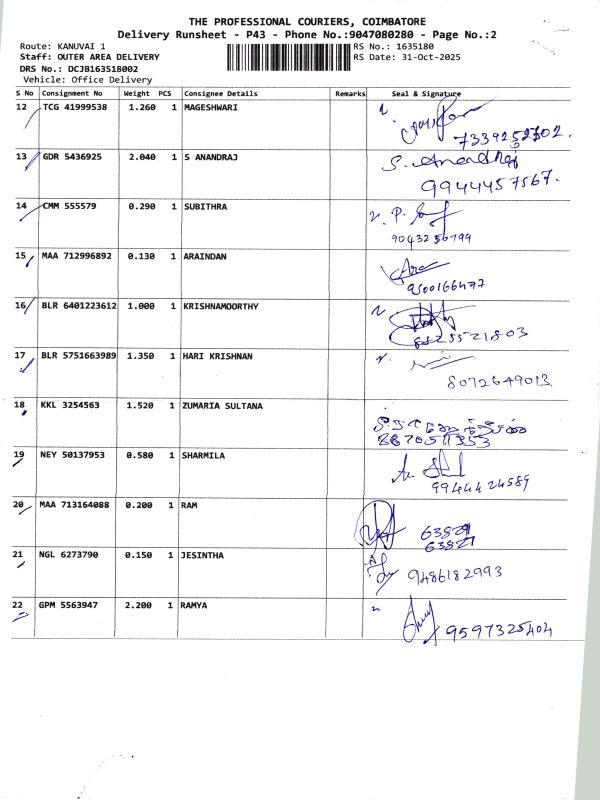 THE PROFESSIONAL COURIERS, COIMBATORE
Delivery Runsheet - P43 - Phone No.:9047080280 - Page No.:2
Route: KANUVAI 1 RS No.: 1635180
Staff: OUTER AREA DELIVERY RS Date: 31-Oct-2025
DRS No.: DCJB163518002
Vehicle: Office Delivery
S No Consignment No Weight PCS Consignee Details Remarks Seal & Signature
12 TCG 41999538 1.260 1 MAGESHWARI
7339252702.
13 GDR 5436925 2.040 1 S ANANDRAJ S. Anandraj
9944457567.
14 CMM 555579 0.290 1 SUBITHRA
9043256799
15 MAA 712996892 0.130 1 ARAINDAN
9500166477
16 BLR 6401223612 1.000 1 KRISHNAMOORTHY
17 BLR 5751663989 1.350 1 HARI KRISHNAN
8072649013
18 KKL 3254563 1.520 1 ZUMARIA SULTANA
8870511353
19 NEY 50137953 0.580 1 SHARMILA
9944424589
20 MAA 713164088 0.200 1 RAM
63821
21 NGL 6273790 0.150 1 JESINTHA 9486182993
22 GPM 5563947 2.200 1 RAMYA 9597325404